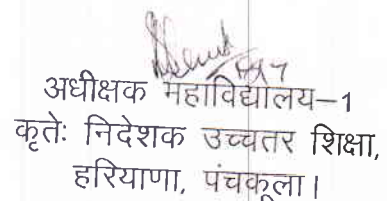 अधीक्षक महाविद्यालय-1
कृतेः निदेशक उच्चतर शिक्षा,
हरियाणा, पंचकूला।